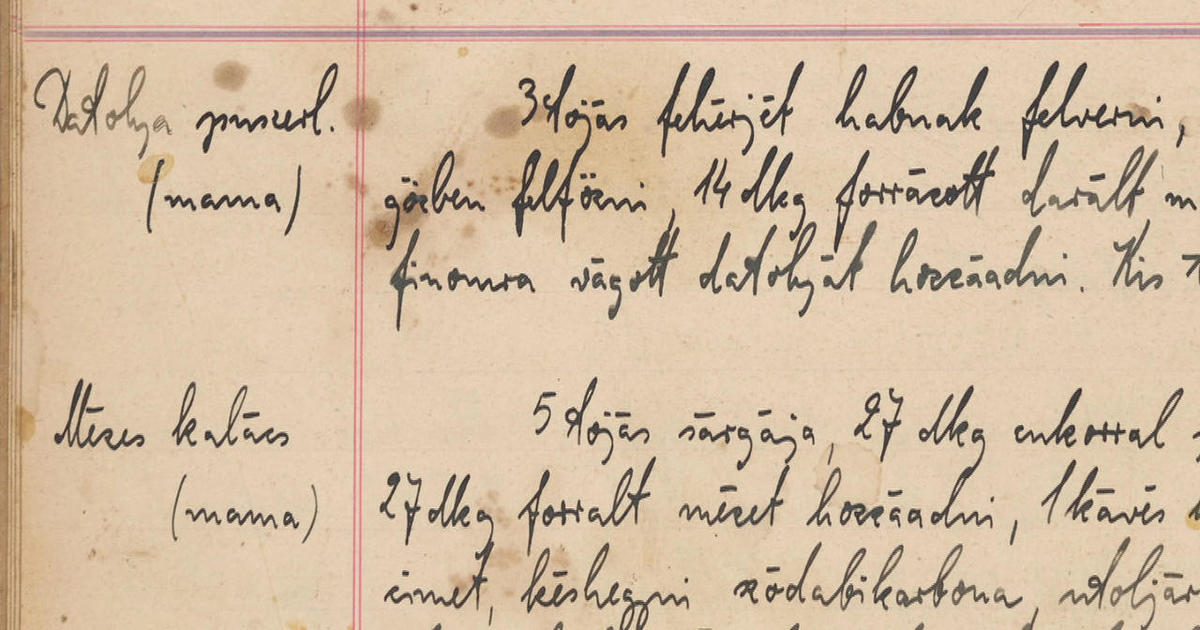 Datolya puszerl. 3 tojás fehérjét habnak felverni,
(mama) gőzben felfőzni, 14 dkg forrázott darált m
finomra vágott datolyát hozzáadni. Kis
Mézes kalács 5 tojás sárgája, 27 dkg cukorral
(mama) 27 dkg forralt mézet hozzáadni, 1 kávés
címet, késhegyni szódabikarbona, utoljár